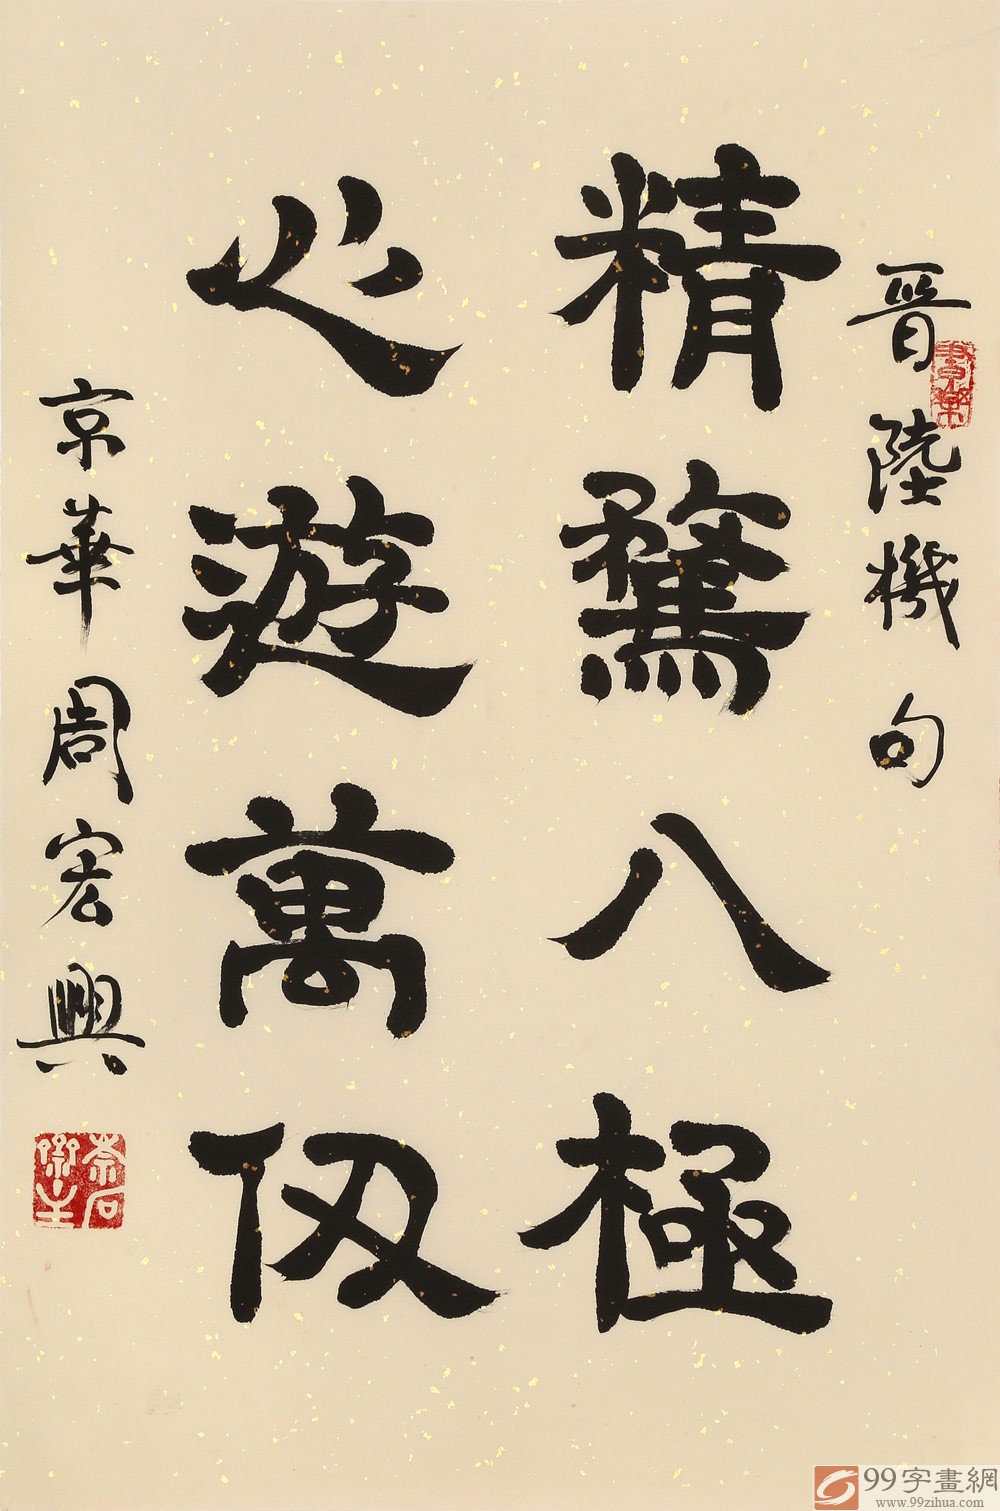 晋陸機句
精騖八極
心遊萬仞
京華周宏興
99字畫網
www.99zihua.com